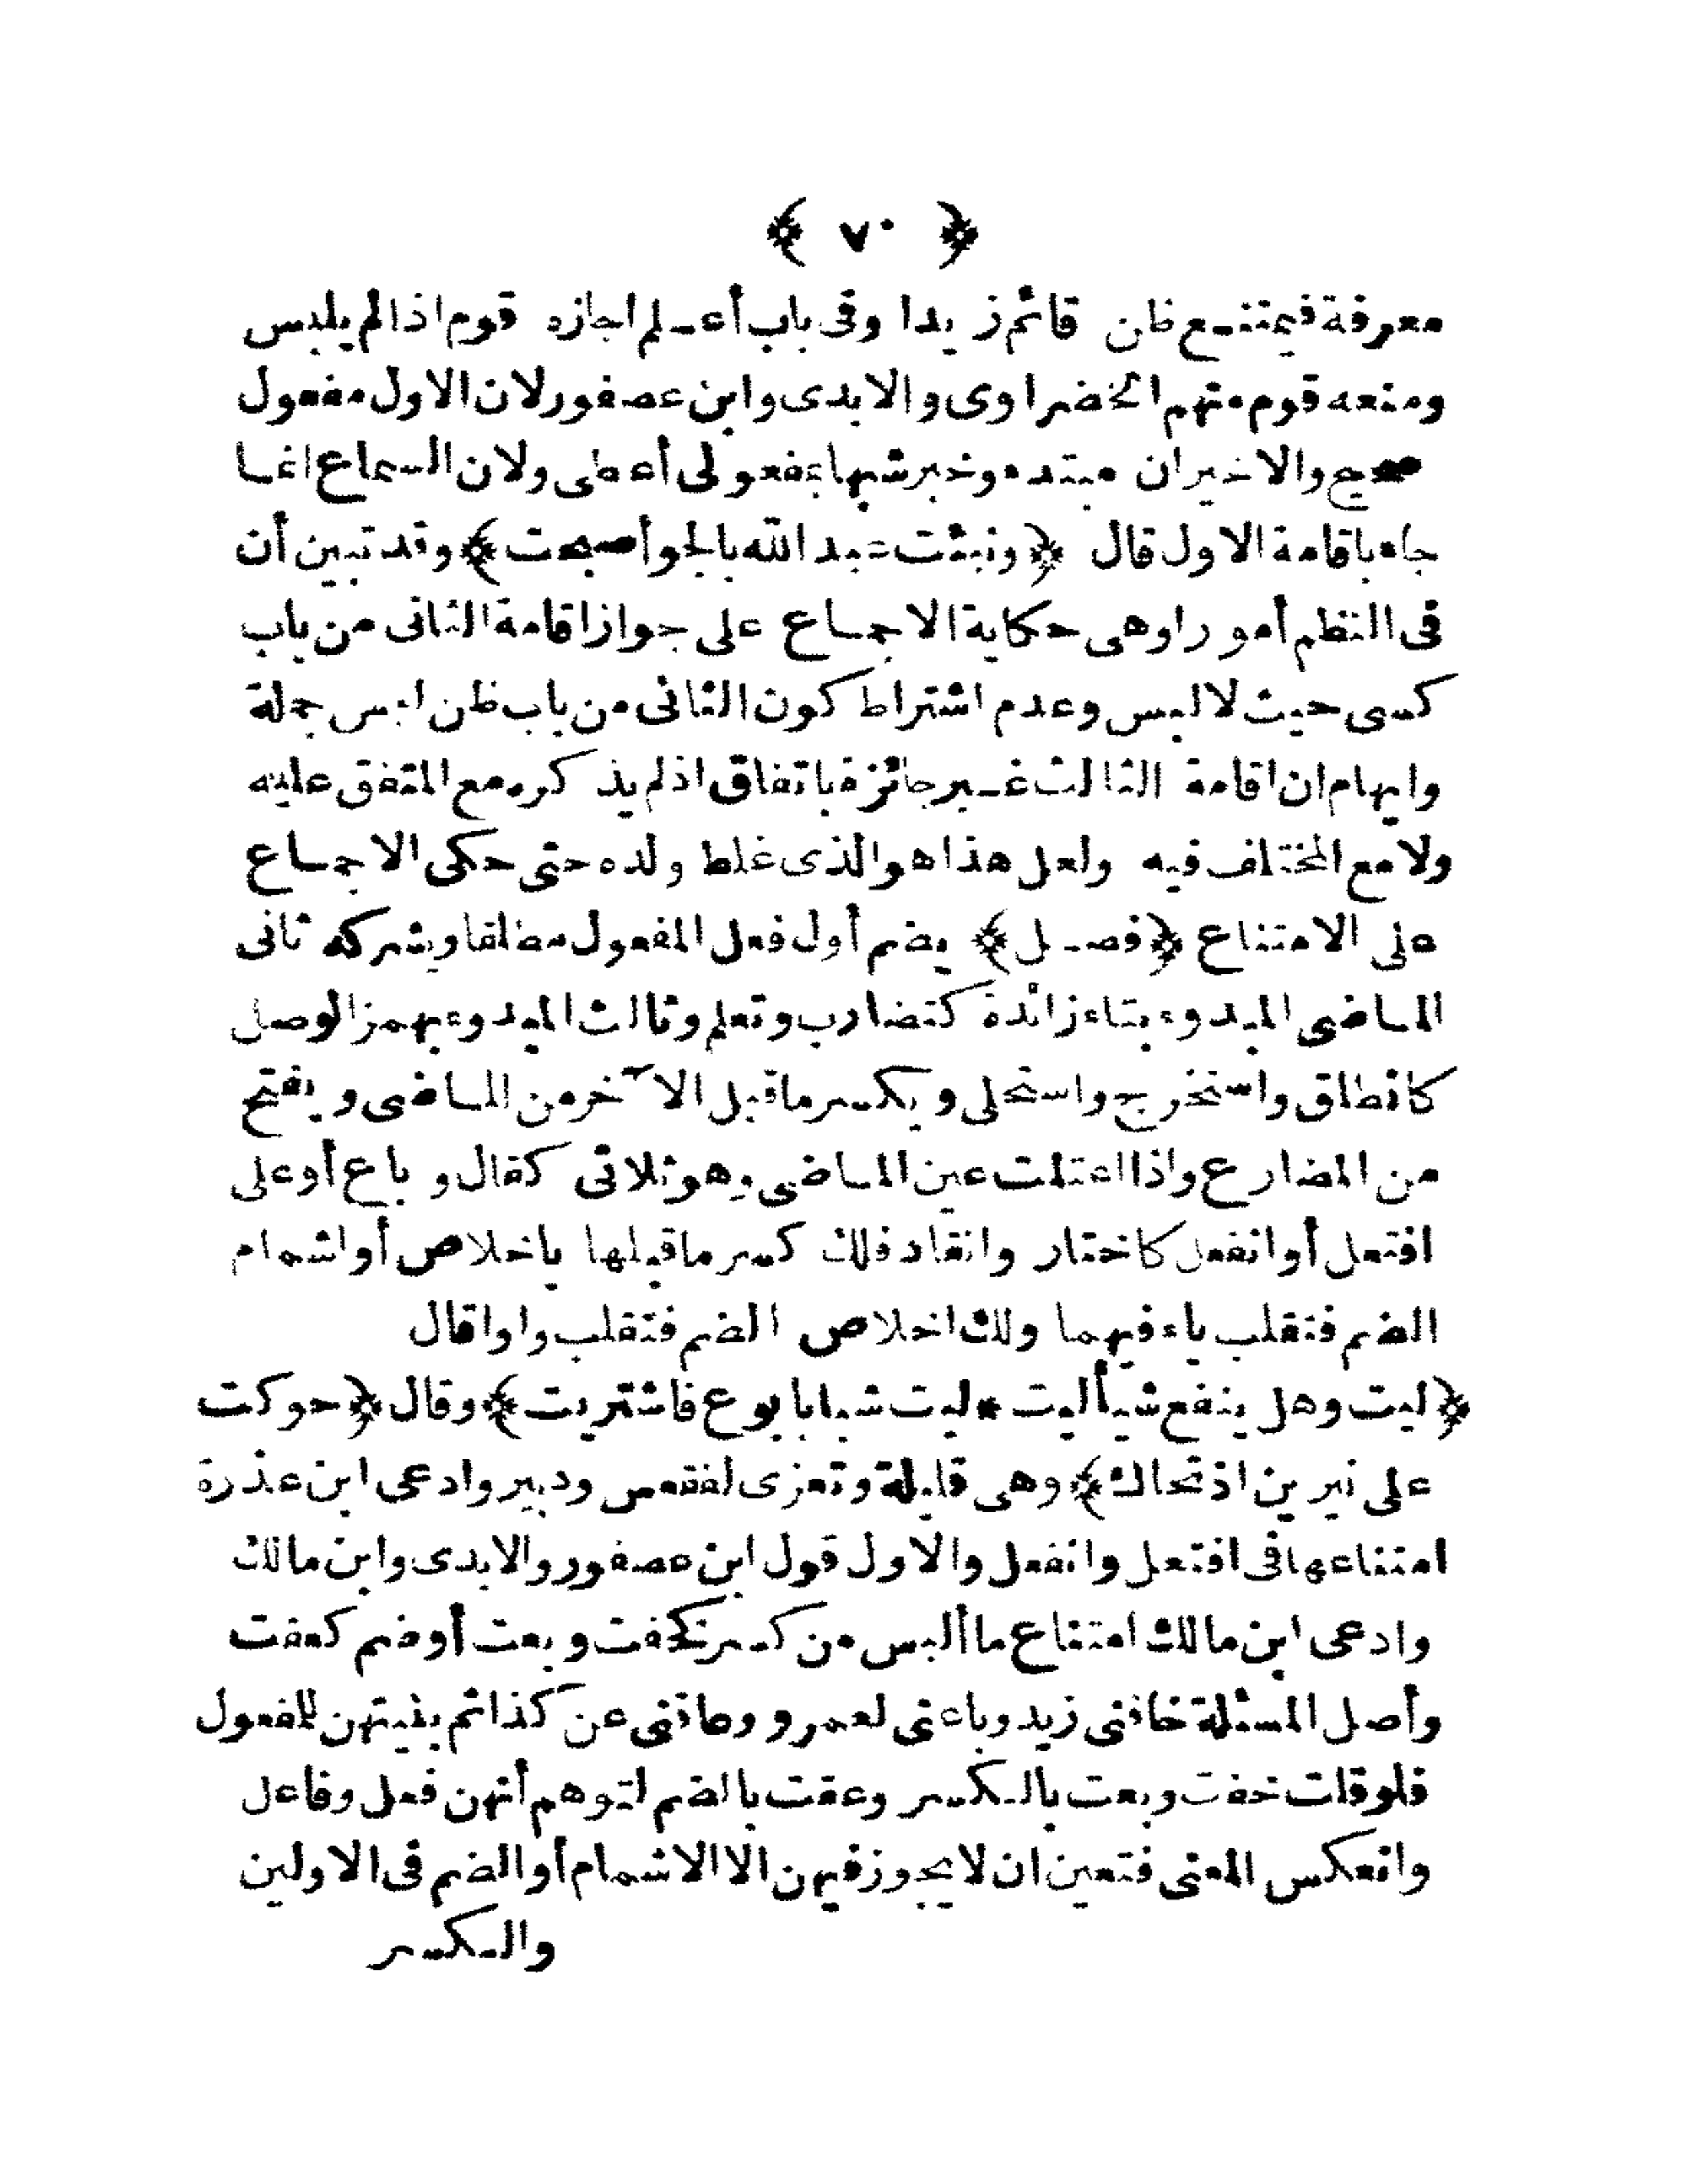 ﴿ ٧٠ ﴾
معرفة فيمتنع ظن قائم زيدا وفى باب أعلم اجازه قوم اذا لم يلبس
ومنعه قوم منهم الخضراوى والابدى وابن عصفور لان الاول مفعول
صحيح والاخيران مبتدء وخبر شبها بمفعولى أعطى ولان السماع انما
جاء باقامة الاول قال ﴿ونبئت عبد الله بالجو أصبحت﴾ وقد تبين أن
فى النظم أمورا وهى حكاية الاجماع على جواز اقامة الثانى من باب
كسى حيث لا لبس وعدم اشتراط كون الثانى من باب ظن ليس جملة
وايهام ان اقامة الثالث غير جائزة باتفاق اذ لم يذكره مع المتفق عليه
ولا مع المختلف فيه ولعل هذا هو الذى غلط ولده حتى حكى الاجماع
على الامتناع ﴿فصل﴾ يضم أول فعل المفعول مطلقا ويشركه ثانى
الماضى المبدوء بتاء زائدة كتضارب وتعلم وثالث المبدوء بهمز الوصل
كانطلق واستخرج واستحلى ويكسر ما قبل الآخر من الماضى ويفتح
من المضارع واذا اعتلت عين الماضى وهو ثلاثى كقال وباع أو على
افتعل أو انفعل كاختار وانقاد فلك كسر ما قبلها باخلاص أو اشمام
الضم فتقلب ياء فيهما ولك اخلاص الضم فتقلب واوا قال
﴿ليت وهل ينفع شيأ ليت * ليت شبابا بوع فاشتريت﴾ وقال ﴿حوكت
على نيرين اذ تحاك﴾ وهى قليلة وتعزى لفقعس ودبير وادعى ابن عذرة
امتناعها فى افتعل وانفعل والاول قول ابن عصفور والابدى وابن مالك
وادعى ابن مالك امتناع ما ألبس من كسر كخفت وبعت أو ضم كعقت
وأصل المسئلة خافنى زيد وباعنى لعمرو وعاقنى عن كذا ثم بنيتهن للمفعول
فلو قلت خفت وبعت بالكسر وعقت بالضم لتوهم أنهن فعل وفاعل
وانعكس المعنى فتعين ان لا يجوز فيهن الا الاشمام أو الضم فى الاولين
والكسر